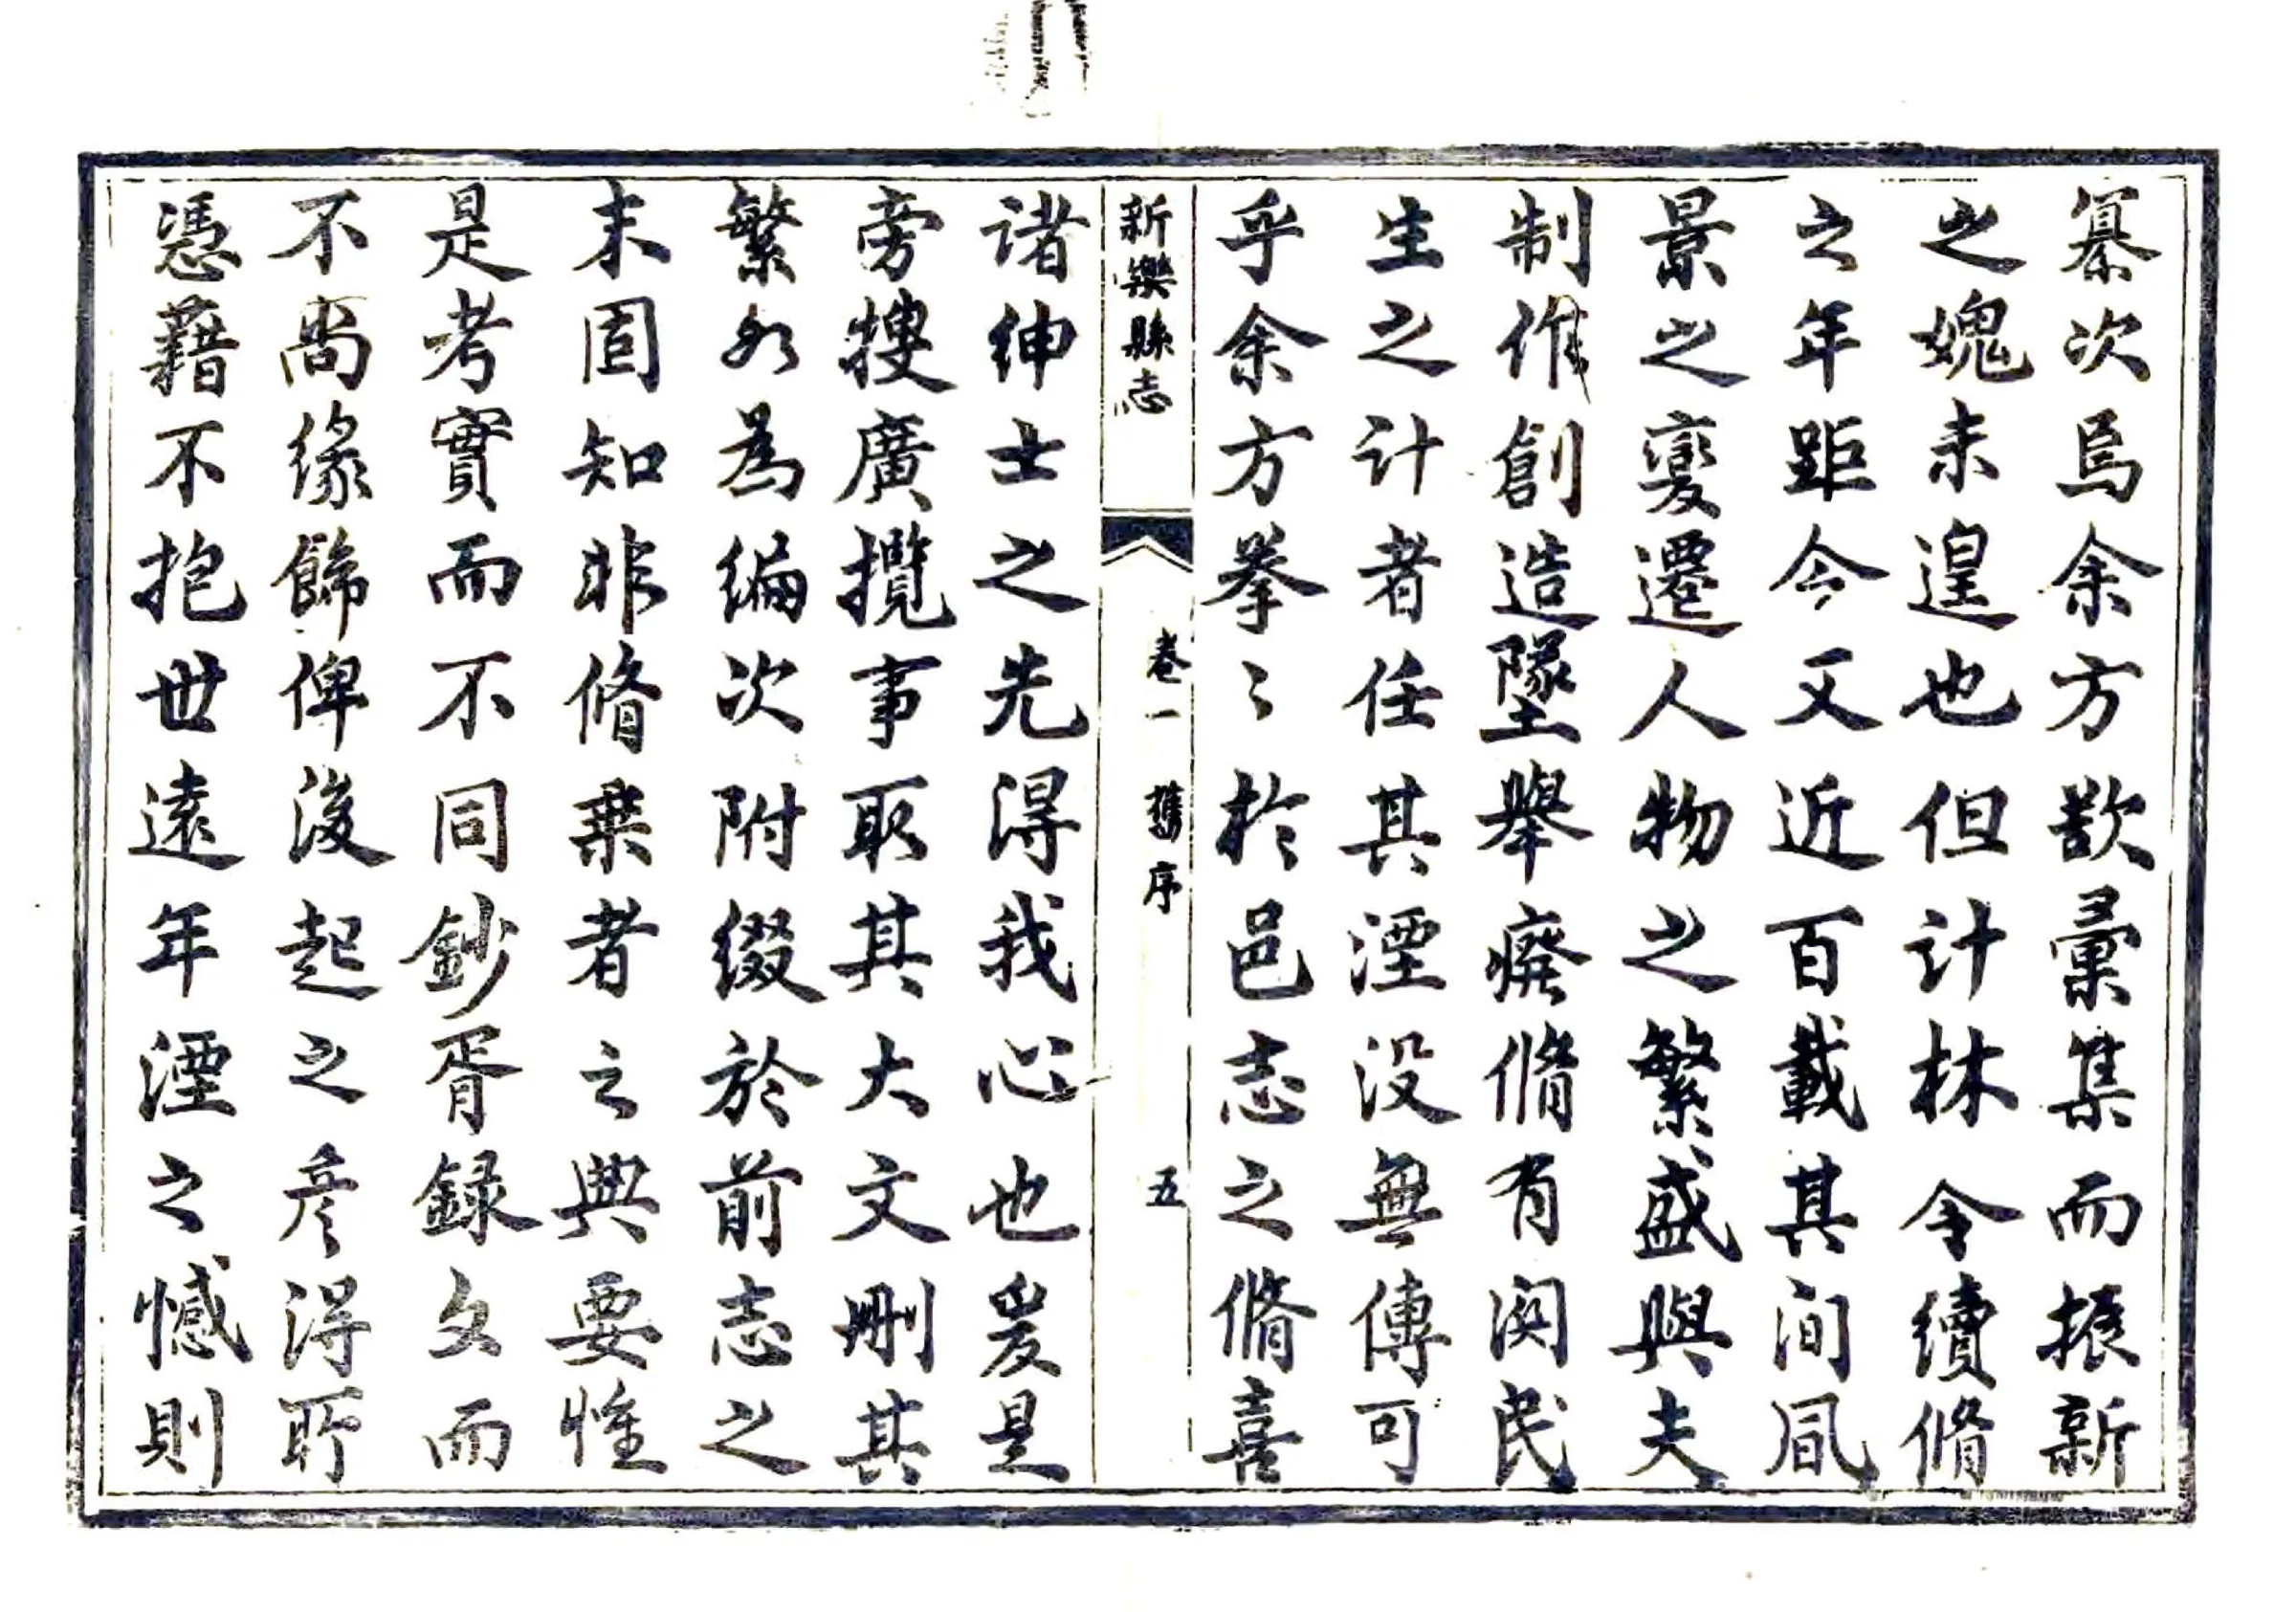 纂次焉余方歉彙集而振新
之媿未遑也但計林令續脩
之年距今又近百載其间風
景之變遷人物之繁盛與夫
制作創造墜舉癈脩有関民
生之計者任其湮没無傳可
乎余方拳〻於邑志之脩喜
新樂縣志
卷一
舊序
五
諸紳士之先淂我心也爰是
旁搜廣攬事取其大文刪其
繁如為編次附綴於前志之
末固知非脩乗者之典要惟
是考實而不同鈔胥録文而
不啻緣飾俾後起之彦淂所
憑藉不抱世遠年湮之憾則